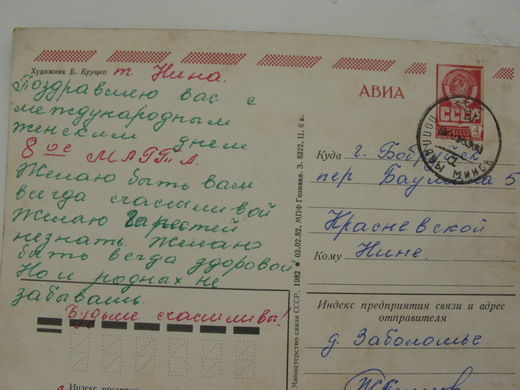 Художник Б. Круцко
т. Нина.
Поздравляю вас с
международным
женским днем
8 ое МАРТА.
Желаю быть вам
всегда счасливой
Желаю
незнать. Желаю
быть всегда здоровой
Но и родных не
забывашь.
Будьте счасливы!
Министерство связи СССР. 1982 ● 03.02.82. МПФ Гознака. З. 8322. Ц. 6 к.
АВИА
СССР
МИНСК
Куда г. Бобруйск
пер Баумана 5
Красневской
Кому Нине.
Индекс предприятия связи и адрес
отправителя
д. Заболотье